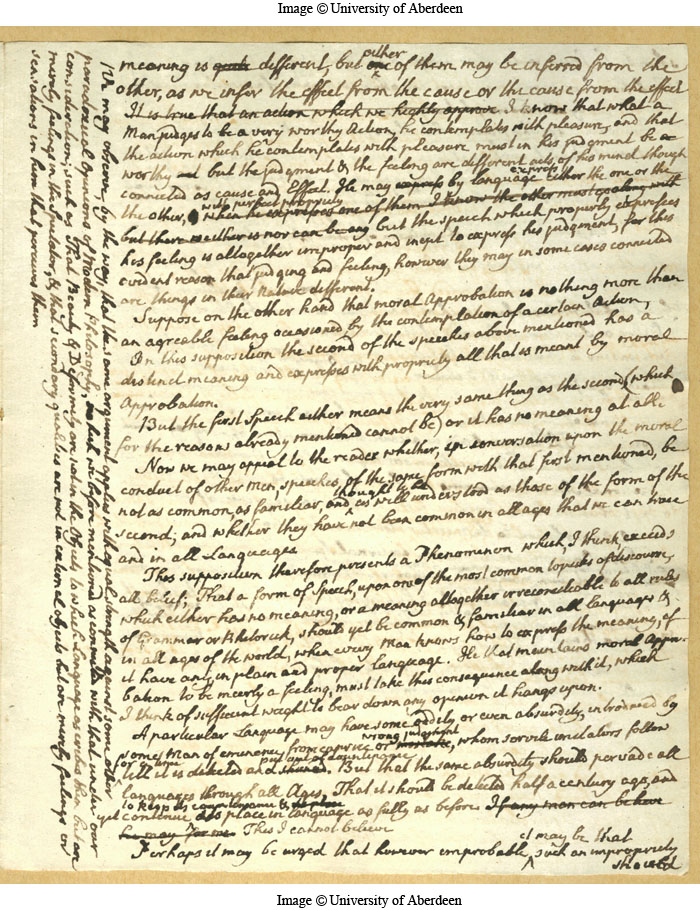 Image © University of Aberdeen
meaning is quite different, but either one of them may be inferred from the
other, as we infer the effect from the cause or the cause from the effect
It is true that an action which we highly approve I know that what a
Man judges to be a very worthy Action, he contemplates with pleasure, and that
the action which he contemplates with pleasure must in his judgment be
worthy but the judgment & the feeling are different acts of his mind though
connected as cause and Effect. He may express by language express either the one or the
the other, with perfect propriety when he expresses one of them I know the other must go along with
but there neither is nor can be any but the speech which properly expresses
his feeling is altogether improper and inept to express his judgment, for this
evident reason that judging and feeling, however they may in some cases connected
are things in their Nature different.
Suppose on the other hand that moral Approbation is nothing more than
an agreable feeling occasioned by the contemplation of a certain Action,
In this supposition the second of the speeches above mentioned has a
distinct meaning and expresses with propriety all that is meant by moral
Approbation.
But the first Speech either means the very same thing as the second (which
for the reasons already mentioned cannot be) or it has no meaning at all.
Now we may appeal to the reader whether, in conversation upon the moral
conduct of other Men, speeches, of the same form with that first mentioned, be
not as common, as familiar, and as well understood as those of the form of the
second; and whether they have not been common in all ages that we can trace
and in all Languages
This supposition therefore presents a Phenomenon which, I think, exceeds
all belief; That a form of Speech, upon one of the most common topicks of discourse,
which either has no meaning, or a meaning altogether irreconcileable to all rules
of Grammar or Rhetorick, should yet be common & familiar in all languages &
in all ages of the world, when every Man knows how to express the meaning, if
it have any, in plain and proper language. He that maintains moral Appro-
bation to be meerly a feeling, must take this consequence along with it, which
I think of sufficient weight to bear down any opinion it hangs upon.
A particular Language may have some oddity or even absurdity, introduced by
some Man of eminency from caprice or wrong judgment, whom servile imitators follow
for a time till it is detected and put out of countenance. But that the same absurdity should pervade all
languages through all Ages, That it should be detected half a century ago, and
yet continue to keep its countenance & its place in language as fully as before If any man can believe
he may for me This I cannot believe
Perhaps it may be urged that however improbable it may be that such an impropriety
should
We may observe, by the way, that the same argument applies with equal strength against some other
paradoxical Opinions of Modern Philosophy, which we before mentioned as connected with that under our
consideration, such as That Beauty & Deformity are not in the Objects to which Language ascribes them but are
meerly feelings in the Spectator, & that secondary qualities are not in external objects but are merely feelings or
sensations in him that perceives them
Image © University of Aberdeen